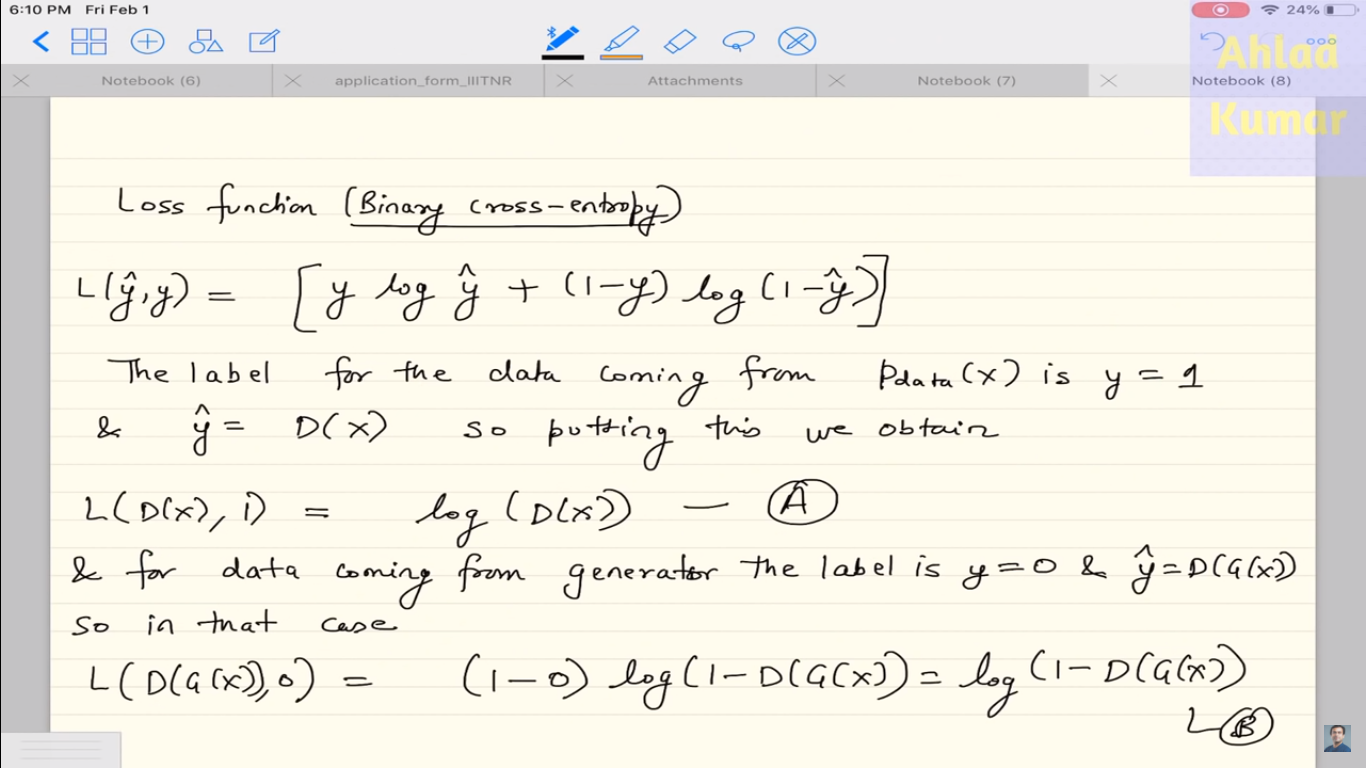 6:10 PM Fri Feb 1
24%
Ahlad
Kumar
Notebook (6)
application_form_IIITNR
Attachments
Notebook (7)
Notebook (8)
Loss function (Binary cross-entropy)
L(ŷ,y) = [y log ŷ + (1-y) log (1-ŷ)]
The label for the data coming from Pdata(x) is y = 1
& ŷ = D(x) so putting this we obtain
L(D(x), 1) = log (D(x)) — A
& for data coming from generator the label is y=0 & ŷ=D(G(x))
so in that case
L(D(G(x)),0) = (1-0) log(1-D(G(x)) = log (1-D(G(x))
B